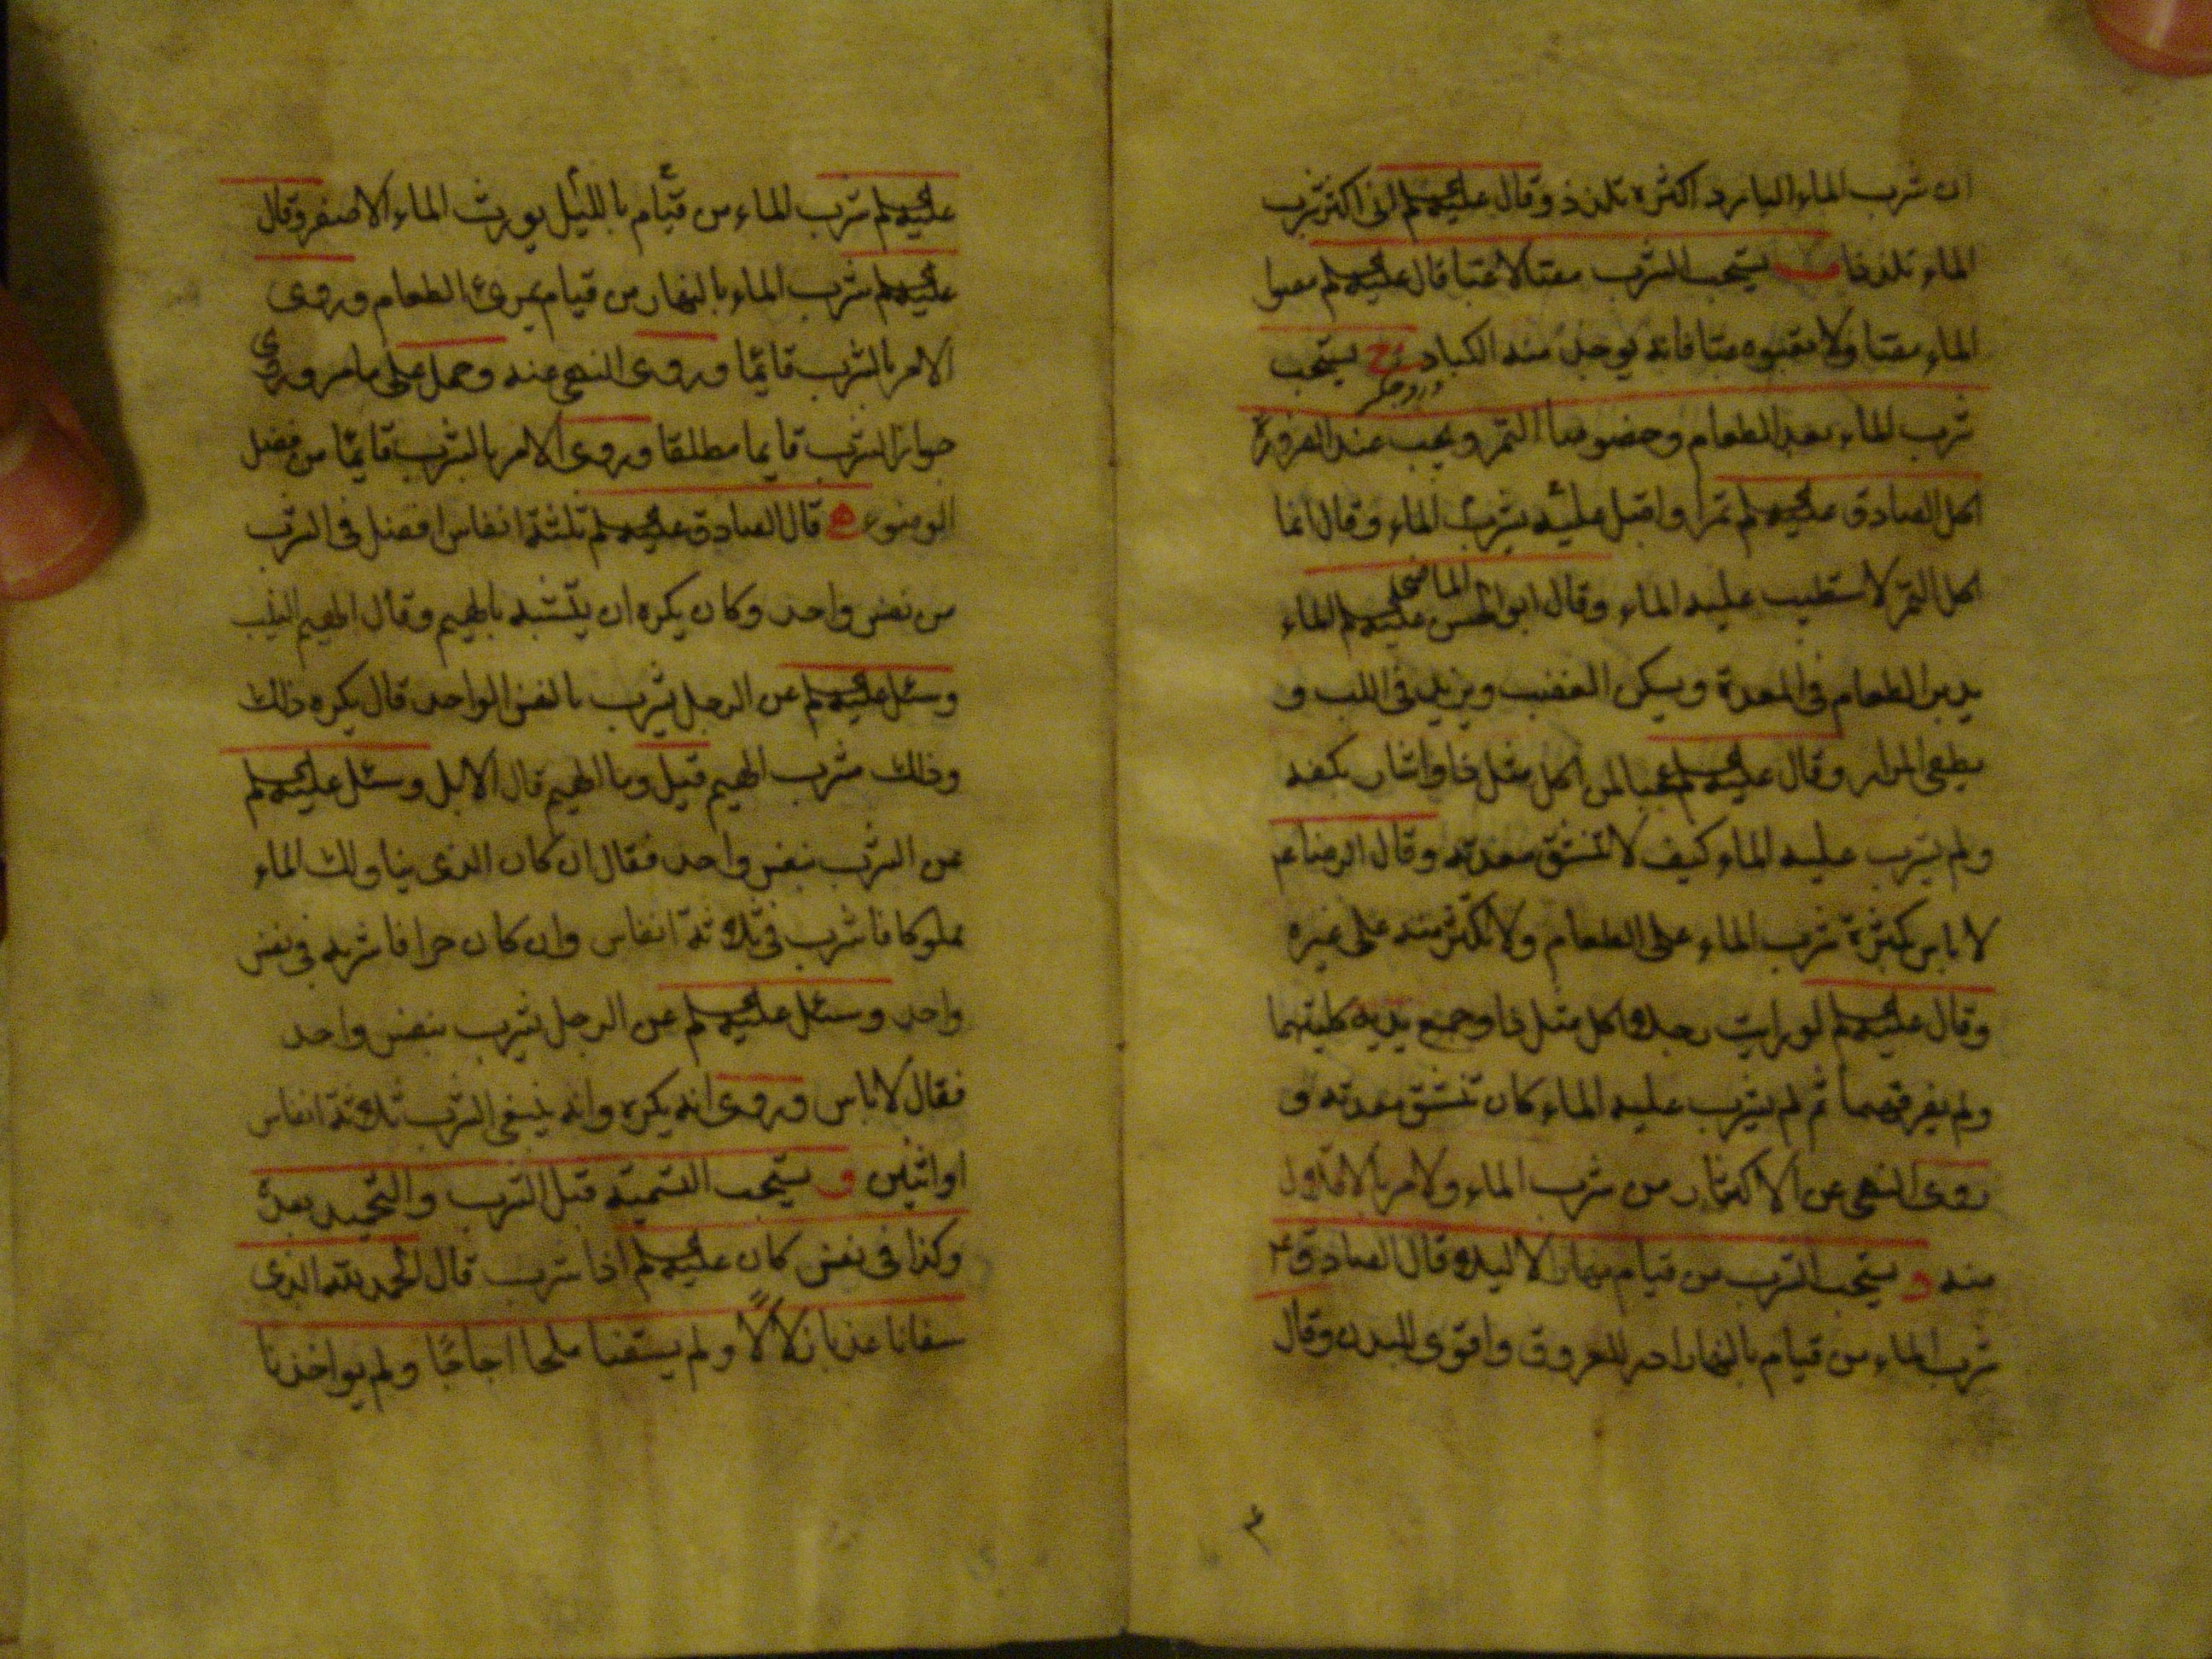 ان شرب الماء البارد اكثره تلذذ وقال عليه السلم انى اكثر شرب
الماء تلذذا ب يستحب الشرب مصا لا عبا قال عليه السلم مصوا
الماء مصا ولا تعبوه عبا فانه يوجد منه الكباد ج يستحب
شرب الماء بعد الطعام وخصوصا التمر ويجب عند الضرورة
اكل الصادق عليه السلم تمرا واقبل عليه يشرب الماء وقال انما
اكل التمر لاستطيب عليه الماء وقال ابو الحسن الماضى عليه السلم الماء
يدبر الطعام فى المعدة ويسكن الغضب ويزيد فى اللب و
يطفى المرار وقال عليه السلم عجبا لمن اكل مثل ذا واشار بكفه
ولم يشرب عليه الماء كيف لا تنشق معدته وقال الرضا عم
لا باس بكثرة شرب الماء على الطعام ولا تكثر منه على غيره
وقال عليه السلم لو رايت رجلا اكل مثل ذا وجمع يديه كلتيهما
ولم يفرقهما ثم لم يشرب عليه الماء كان تنشق معدته و
روى النهى عن الاكثار من شرب الماء ولامر بالاقلال
منه د يستحب الشرب من قيام نهارا لا ليلا قال الصادق ع
شرب الماء من قيام بالنهار ادر للعروق واقوى للبدن وقال
عليه السلم شرب الماء من قيام بالليل يورث الماء الاصفر وقال
عليه السلم شرب الماء بالنهار من قيام يمرئ الطعام وروى
الامر بالشرب قائما وروى النهى عنه وحمل على ما مر وروى
جواز الشرب قايما مطلقا وروى الامر بالشرب قائما من فضل
الوضوء ه قال الصادق عليه السلم ثلثة انفاس افضل فى الشرب
من نفس واحد وكان يكره ان يتشبه بالهيم وقال الهيم النيب
وسئل عليه السلم عن الرجل يشرب بالنفس الواحد قال يكره ذلك
وذلك شرب الهيم قيل وما الهيم قال الابل وسئل عليه السلم
عن الشرب بنفس واحد فقال ان كان الذى يناولك الماء
مملوكا فاشرب فى ثلاثة انفاس وان كان حرا فاشربه فى نفس
واحد وسئل عليه السلم عن الرجل يشرب بنفس واحد
فقال لا باس وروى انه يكره وانه ينبغى الشرب ثلاثة انفاس
او اثنين و يستحب التسمية قبل الشرب والتحميد بعده
وكذا فى نفس كان عليه السلم اذا شرب قال الحمد لله الذى
سقانا عذبا زلالا ولم يسقنا ملحا اجاجا ولم يواخذنا